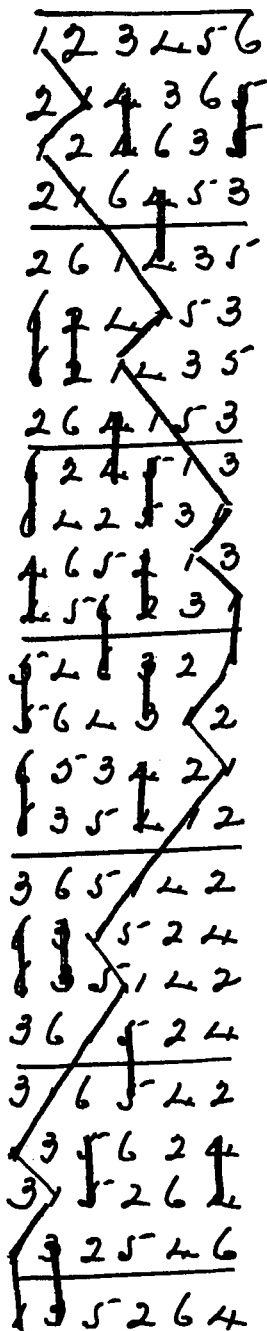 1 2 3 4 5 6
2 1 4 3 6 5
1 2 4 6 3 5
2 1 6 4 5 3
2 6 1 4 3 5
6 2 4 1 5 3
6 2 1 4 3 5
2 6 4 1 5 3
6 2 4 5 1 3
6 4 2 5 3 1
4 6 5 2 1 3
4 5 6 2 3 1
5 4 6 3 2 1
5 6 4 3 1 2
6 5 3 4 2 1
6 3 5 4 1 2
3 6 5 1 4 2
6 3 1 5 2 4
6 3 5 1 4 2
3 6 1 5 2 4
3 1 6 5 4 2
1 3 5 6 2 4
3 1 5 2 6 4
1 3 2 5 4 6
1 3 5 2 6 4